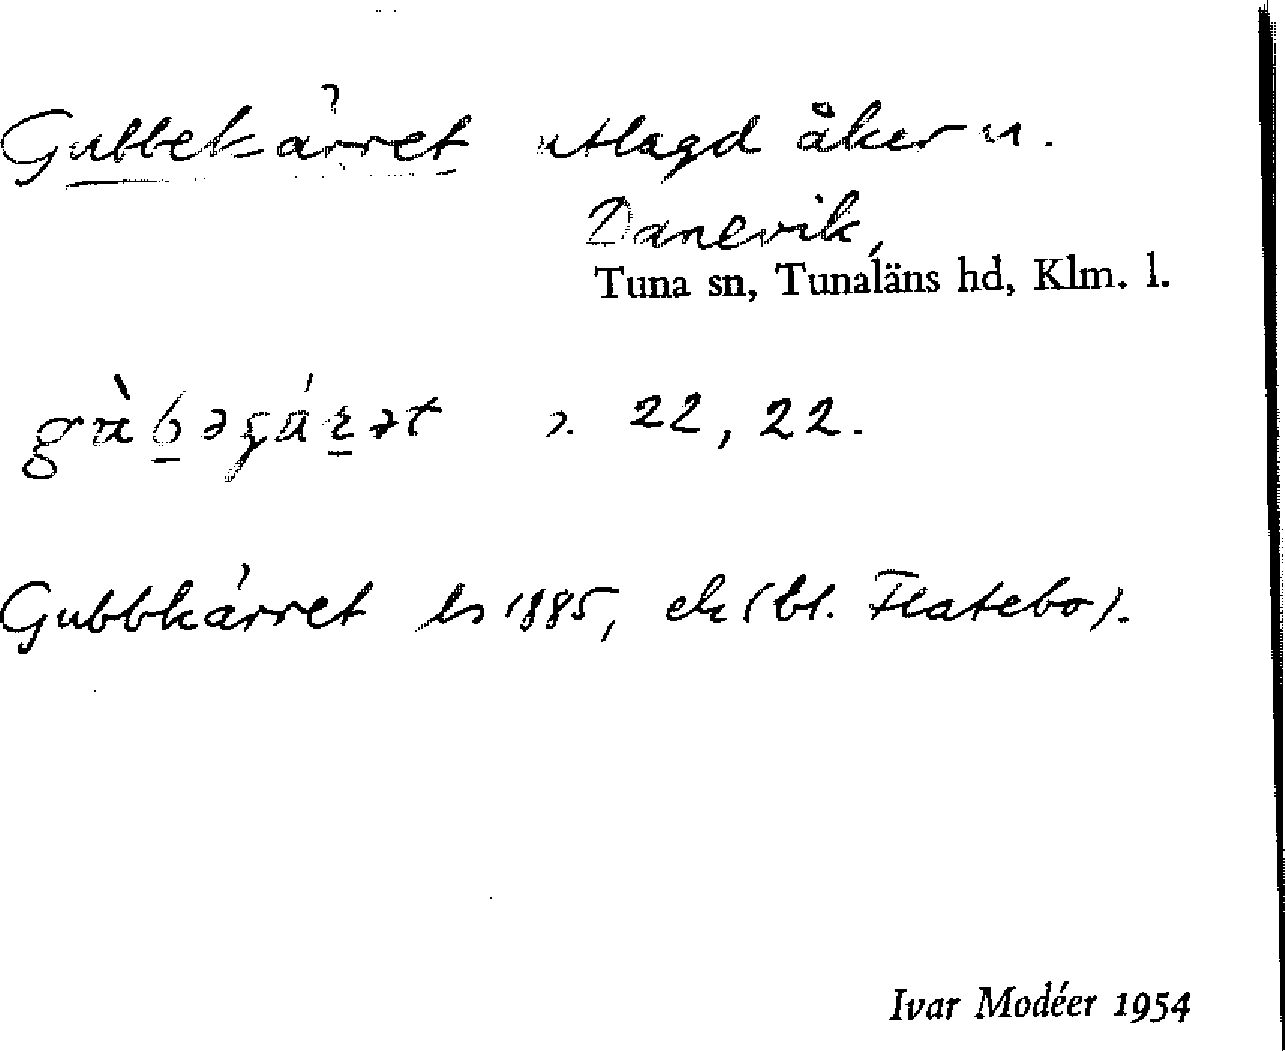 Gubbekärret utlagd åker u.
Danevik,
Tuna sn, Tunaläns hd, Klm. l.
22, 22.
Gubbkärret ls 1885, ek (bl. Flatebo).
Ivar Modéer 1954